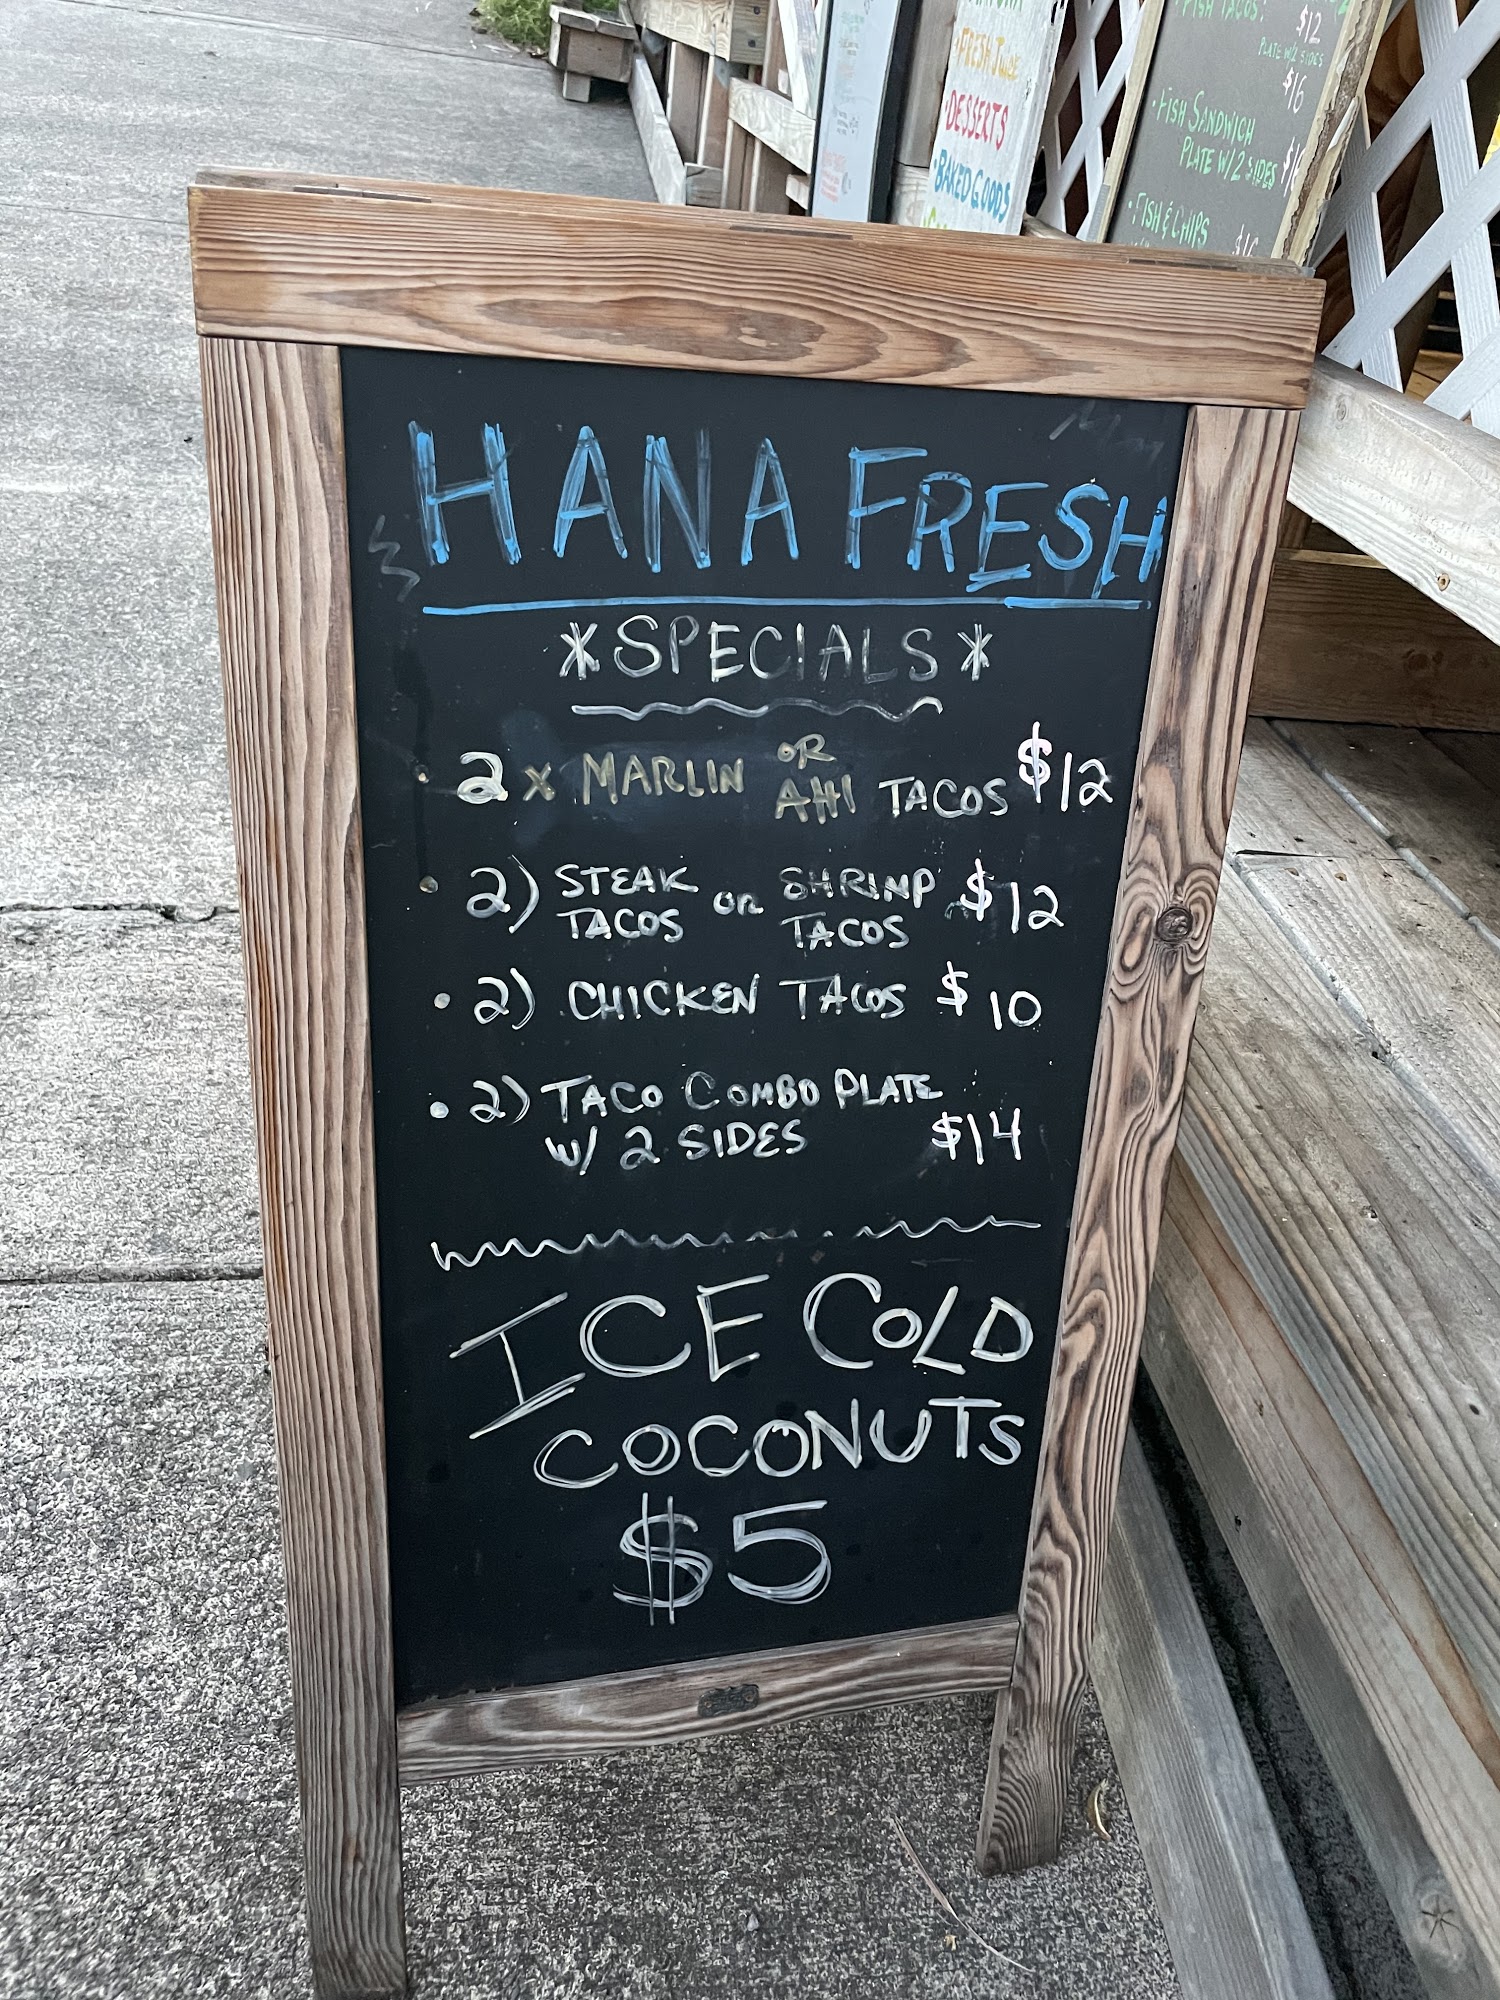 HANA FRESH
*SPECIALS*
• 2 x MARLIN OR AHI TACOS $12
• 2) STEAK TACOS OR SHRIMP TACOS $12
• 2) CHICKEN TACOS $10
• 2) TACO COMBO PLATE
W/ 2 SIDES $14
ICE COLD
COCONUTS
$5
• FRESH JUICE
• DESSERTS
• BAKED GOODS
FISH TACOS:
$12
PLATE W/2 SIDES
$16
• FISH SANDWICH
PLATE W/2 SIDES
• FISH & CHIPS